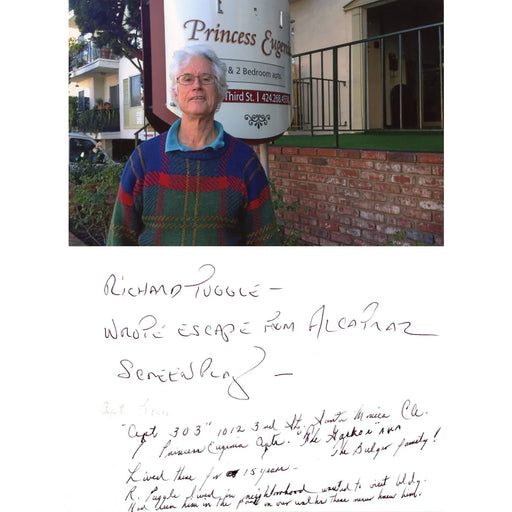 Princess Eugenia
& 2 Bedroom apts.
Third St. | 424.268.4550
RICHARD TUGGLE -
WROTE ESCAPE FROM ALCATRAZ
SCREENPLAY -
"Apt 303" 1012 3rd St. Santa Monica CA.
Princess Eugenia Apts. "The
The Bulger family!
Lived there for 15 years -
R. Tuggle lived in neighborhood wanted to visit bldg.
Had seen him in the past on our walks there never knew him.